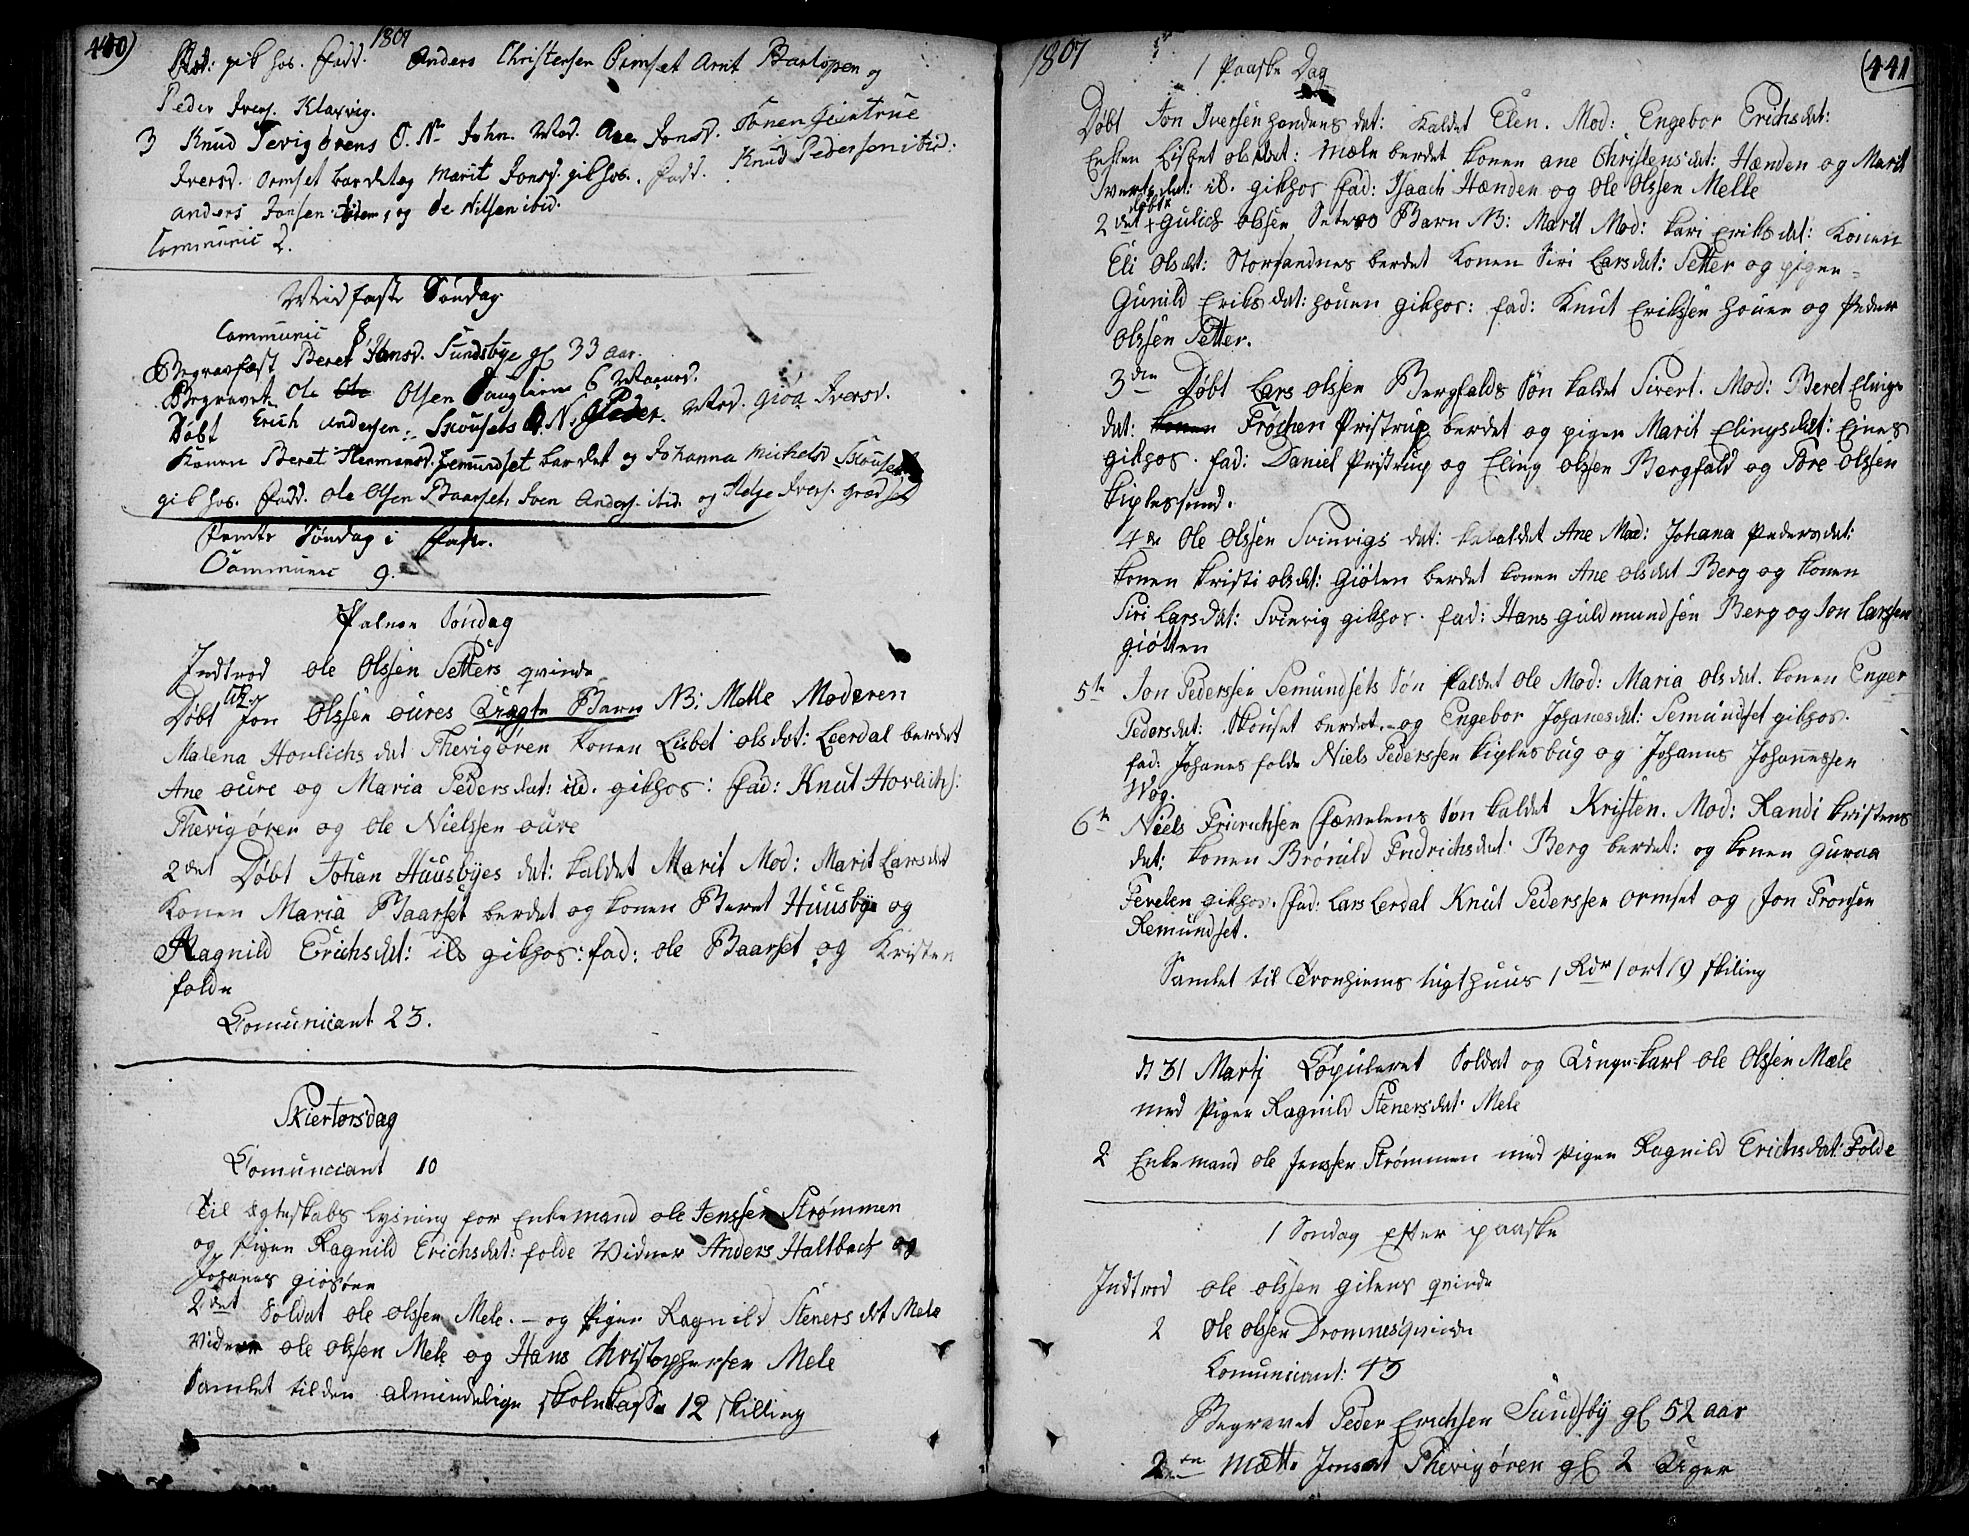 440)
1807
gik hos. Fadd. Anders Christersen Ormset Arnt Barlopen og
Peder Ivers. Klaxvig.
3 Knud Tevigørens S. Nn John. Mod. Ane Jonsd. Konen Giertrue
Iversd. Ormset bar det og Marit Jonsd. gik hos. Fadd. Knud Pedersen ibid:
Anders Jonsen idem, og Ole Nilsen ibid.
Communic 2.
Midfaste Søndag
Communic 8.
Begravfæst Beret Hansd. Sundsbye gl 33 aar.
Begravet Ole Olsen 6 Maaned.
Døbt Erich Andersen Skousets S. N. Peder. Mod. Giøa Iversd.
Konen Beret Hermansd. Semundset bar det og Johanna Michelsd Skouset
gik hos. Fadd. Ole Olsen Baarset, Iven Anders. ibid. og Helge Ivers. Grødset
Femte Søndag i Faste.
Communic 9.
Palme Søndag
Indtrød Ole Olssen Setters qvinde
Døbt Jon Olssen Oures Uægte Barn N: Melle Moderen
Malena Hovlichs dat Thevigøren Konen Lisbet Olsdat: Leerdal berdet
Ane Oure og Maria Peders dat: ild. gikhos: fad: Knut Hovlichs:
Thevigøren og Ole Nielssen Oure
2det Døbt Johan Huusbyes dat: kaldet Marit Mod: Marit Larsdat
Konen Maria Baarset berdet og konen Beret Huusbye og
Ragnild Erichsdat: ild gikhos: fad: Ole Baarset og Kristen
folde
Comunicant 23.
Skiertorsdag
Comunicant 10
Til Egteskabs Lysning for Enkemand Ole Jenssen Strømmen
og Pigen Ragnild Erichsdat: folde Vidner Anders Haltback og
Johanes Giøsøen
2det Soldat Ole Olssen Mele. - og Pigen Ragnild Steners dat Mele
Vidner Ole Olssen Mele og Hans Christophersen Mele
Samlet til den almindelige skolekasse 12 skilling
1807
(441
1 Paaske Dag
Døbt Jon Iversen Hendens dat: kaldet Elen. Mod: Engebor Erichsdat:
Enken Lisbet Olsdat: Mæle berdet konen Ane Christensdat: Hænden og Marit
Iversdat: il. gikhos fad: Isaach Hænden og Ole Olssen Melle
2det døbt Gulich Olssen Seters Barn N: Marit Mod: Kari Eriksdat: Konen
Eli Olsdat: Storsandnes berdet Konen Siri Larsdat: Setter og pigen
Gunild Eriksdat: Houen gikhos: fad: Knut Erikssen Houen og Peder
Olssen Setter.
3den Døbt Lars Olssen Bergfalds Søn kaldet Sivert. Mod: Beret Elings
dat: Frøchen Pristrup berdet og pigen Marit Elingsdat: Eines
gikhos. fad: Daniel Pristrup og Eling Olssen Bergfald og Tore Olssen
Kiplessund.
4de Ole Olssen Svinvigs dat: kaldet Ane Mod: Johana Pedersdat:
konen Kristi Olsdat: Giøten berdet konen Ane Olsdat Berg og konen
Siri Larsdat: Svinvig gikhos. fad: Hans Guldmundsen Berg og Jon Larssen
Giøtten
5te Jon Pederssen Semundsets Søn kaldet Ole Mod: Maria Olsdat. konen Enger
Pedersdat: Skouset berdet og Engebor Johanesdat: Semundset gikhos.
fad: Johanes folde Niels Pederssen Kiplesbug og Johannes Johannessen
Wog.
6te Niels Fridrichsen Fævelens Søn kaldet Kristen. Mod: Randi Kristens
dat: konen Brønild Fridrichsdat: Berg berdet: og konen Guraa
Fevelen gikhos. fad: Lars Lerdal Knut Pederssen Ormset og Jon Tronsen
Remundset.
Samlet til Tronhiems tugthuus 1 Rdr 1 ort 19 skiling
d 31 Martj Copuleret Soldat og Unge-karl Ole Olssen Mæle
med Pigen Ragnild Stenersdat: Mele
2 Enkemand Ole Jenssen Strømmen med Pigen Ragnild Erichsdat: Folde
1 Søndag efter paaske
Indtrød Ole Olssen Gilens qvinde
2 Ole Olssen Dromnes qvinde
Komunicant: 43
Begravet Peder Erichsen Sundsby gl 52 aar
2en Mætte Jonsdat Thevigøren gl 2 Uger